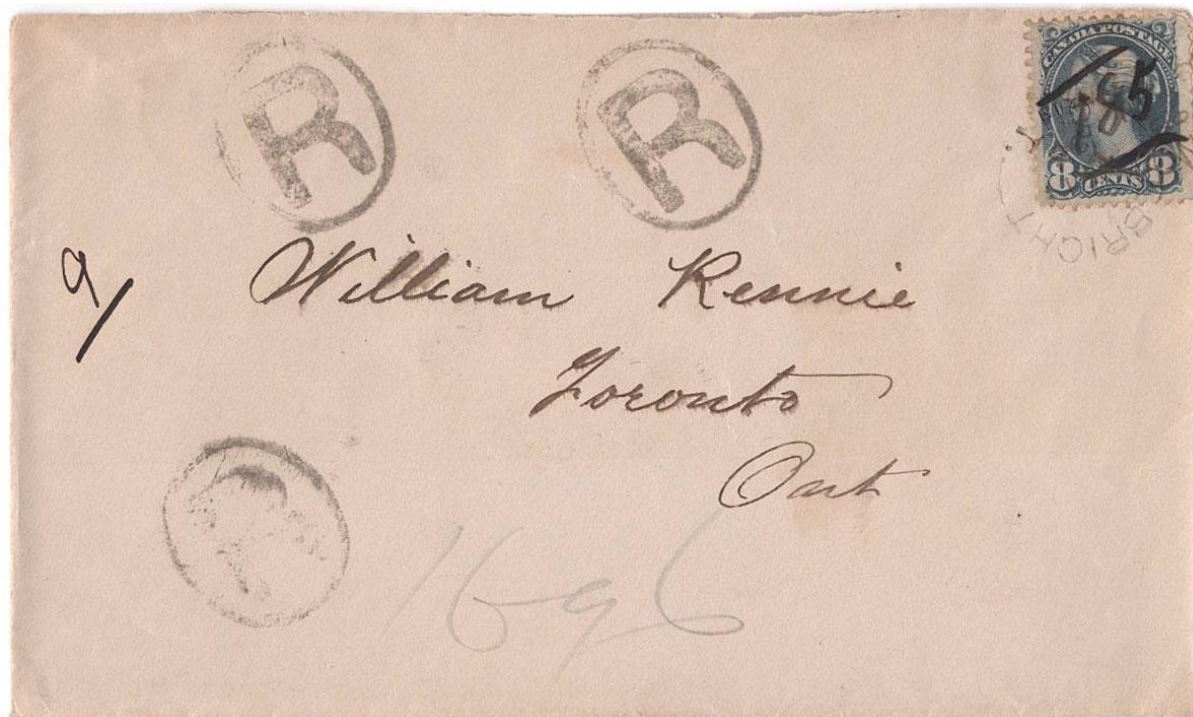 R R
CANADA POSTAGE
85
8 CENTS 8
BRIGHT
9/ William Rennie
Toronto
Ont
R
1696